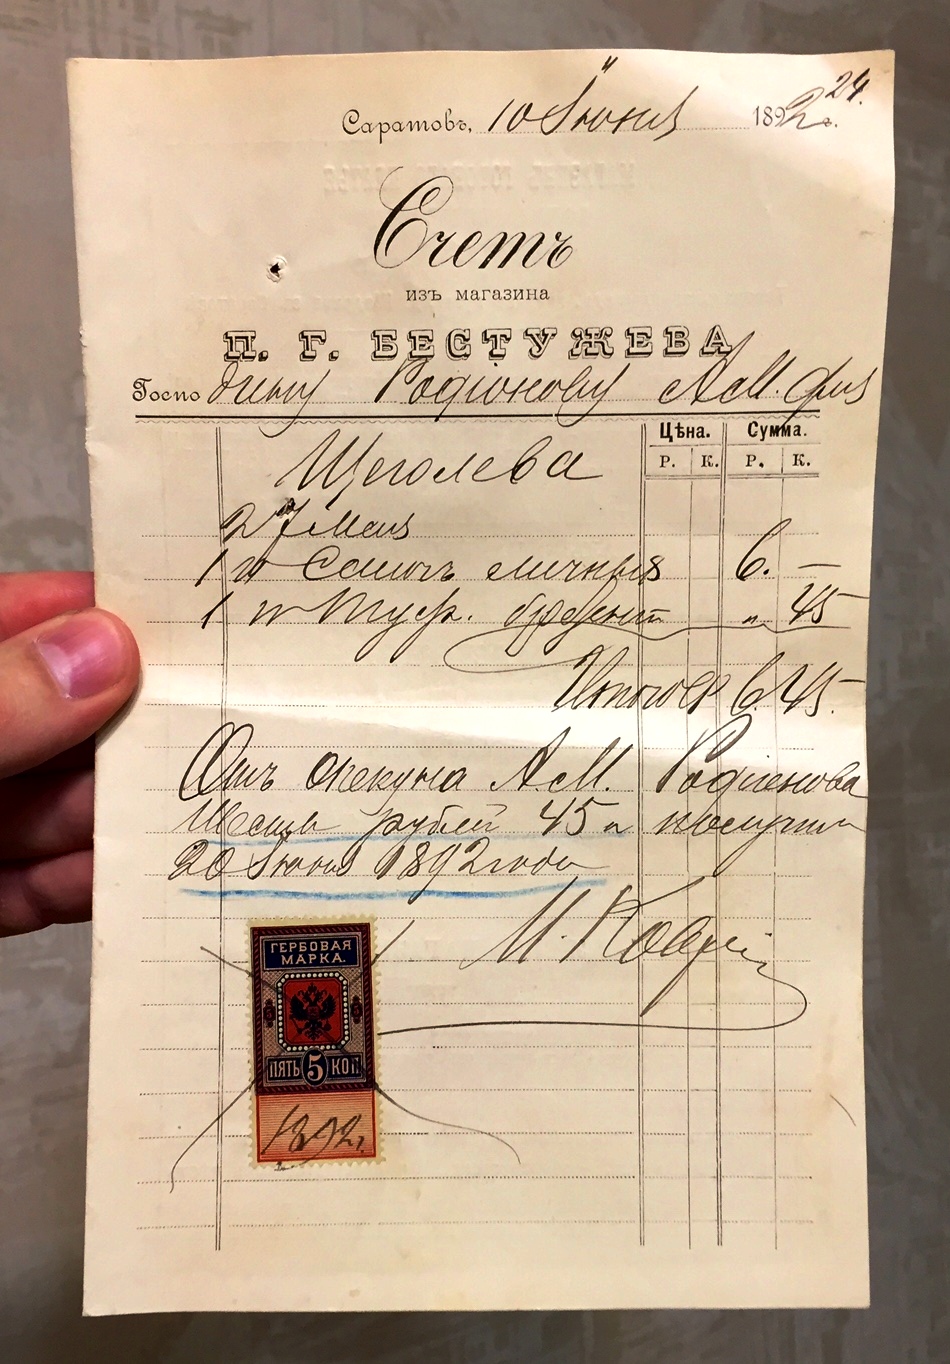 24.
Саратовъ, 10 Іюня 1892 г.
Счетъ
изъ магазина
П. Г. БЕСТУЖЕВА
Господину Родіонову А. М. для
Щеголева
Цѣна. Сумма.
Р. К. Р. К.
27 Мая
1 п Сапогъ 6. —
1 п Туф. " 45
Итого 6. 45.
Отъ опекуна А. М. Родіонова
Шесть рублей 45 к получилъ
20 Іюня 1892 года
М.
ГЕРБОВАЯ
МАРКА.
ПЯТЬ 5 КОП
1892 г.